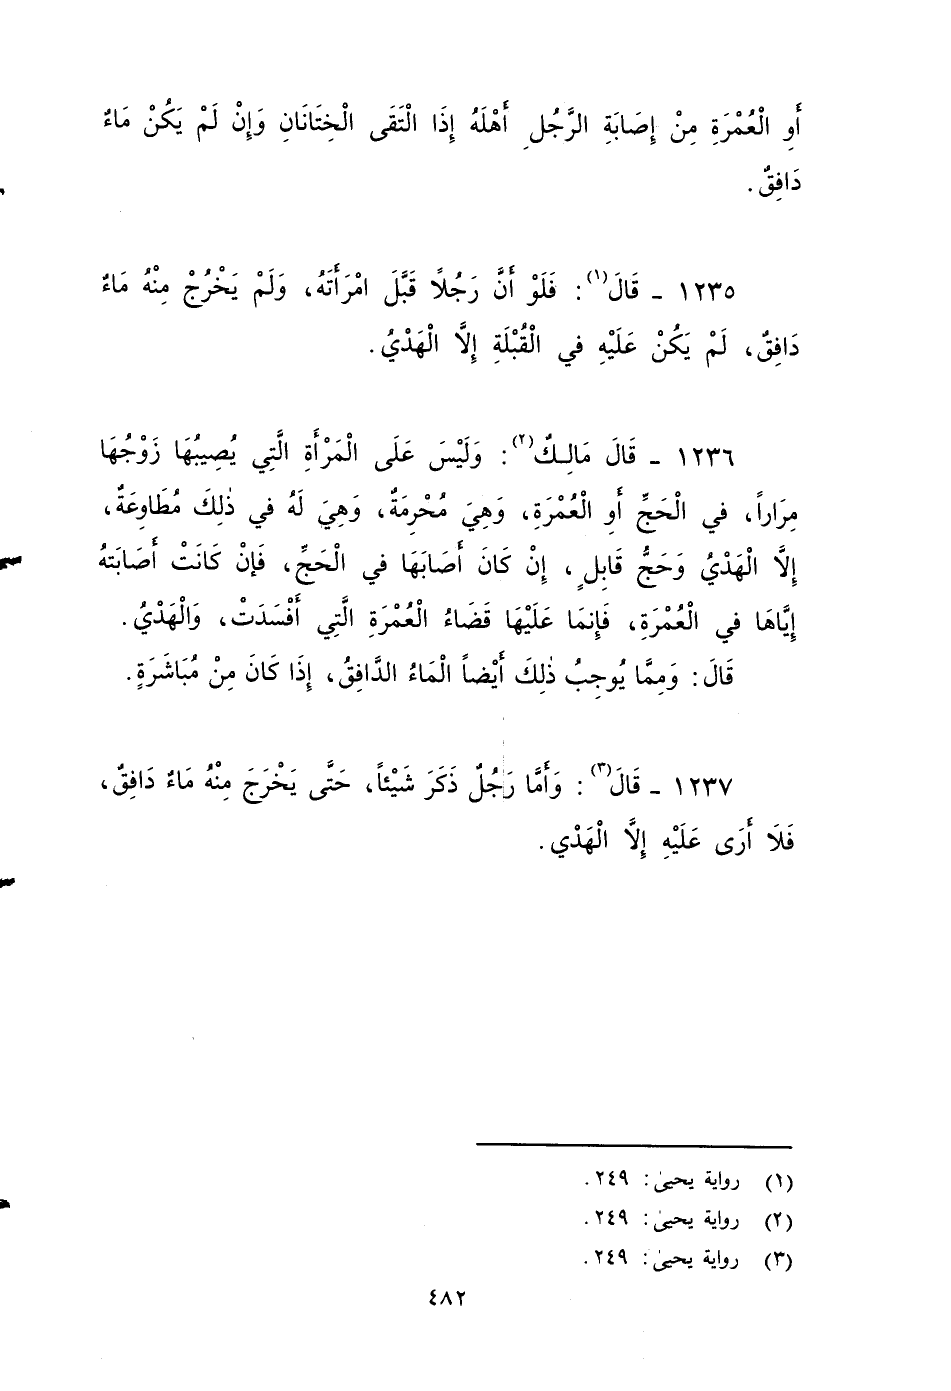 أَوِ الْعُمْرَةِ مِنْ إِصَابَةِ الرَّجُلِ أَهْلَهُ إِذَا الْتَقَى الْخِتَانَانِ وَإِنْ لَمْ يَكُنْ مَاءٌ
دَافِقٌ.
١٢٣٥ - قَالَ(١): فَلَوْ أَنَّ رَجُلًا قَبَّلَ امْرَأَتَهُ، وَلَمْ يَخْرُجْ مِنْهُ مَاءٌ
دَافِقٌ، لَمْ يَكُنْ عَلَيْهِ في الْقُبْلَةِ إِلَّا الْهَدْيُ.
١٢٣٦ - قَالَ مَالِكٌ(٢): وَلَيْسَ عَلَى الْمَرْأَةِ الَّتِي يُصِيبُهَا زَوْجُهَا
مِرَاراً، في الْحَجِّ أَوِ الْعُمْرَةِ، وَهِيَ مُحْرِمَةٌ، وَهِيَ لَهُ في ذٰلِكَ مُطَاوِعَةٌ،
إِلَّا الْهَدْيُ وَحَجُّ قَابِلٍ، إِنْ كَانَ أَصَابَهَا في الْحَجِّ، فَإِنْ كَانَتْ أَصَابَتهُ
إِيَّاهَا في الْعُمْرَةِ، فَإِنمَا عَلَيْهَا قَضَاءُ الْعُمْرَةِ الَّتِي أَفْسَدَتْ، وَالْهَدْيُ.
قَالَ: وَمِمَّا يُوجِبُ ذٰلِكَ أَيْضاً الْمَاءُ الدَّافِقُ، إِذَا كَانَ مِنْ مُبَاشَرَةٍ.
١٢٣٧ - قَالَ(٣): وَأَمَّا رَجُلٌ ذَكَرَ شَيْئاً، حَتَّى يَخْرَجَ مِنْهُ مَاءٌ دَافِقٌ،
فَلَا أَرَى عَلَيْهِ إِلَّا الْهَدْي.
(١) رواية يحيىٰ: ٢٤٩.
(٢) رواية يحيىٰ: ٢٤٩.
(٣) رواية يحيىٰ: ٢٤٩.
٤٨٢